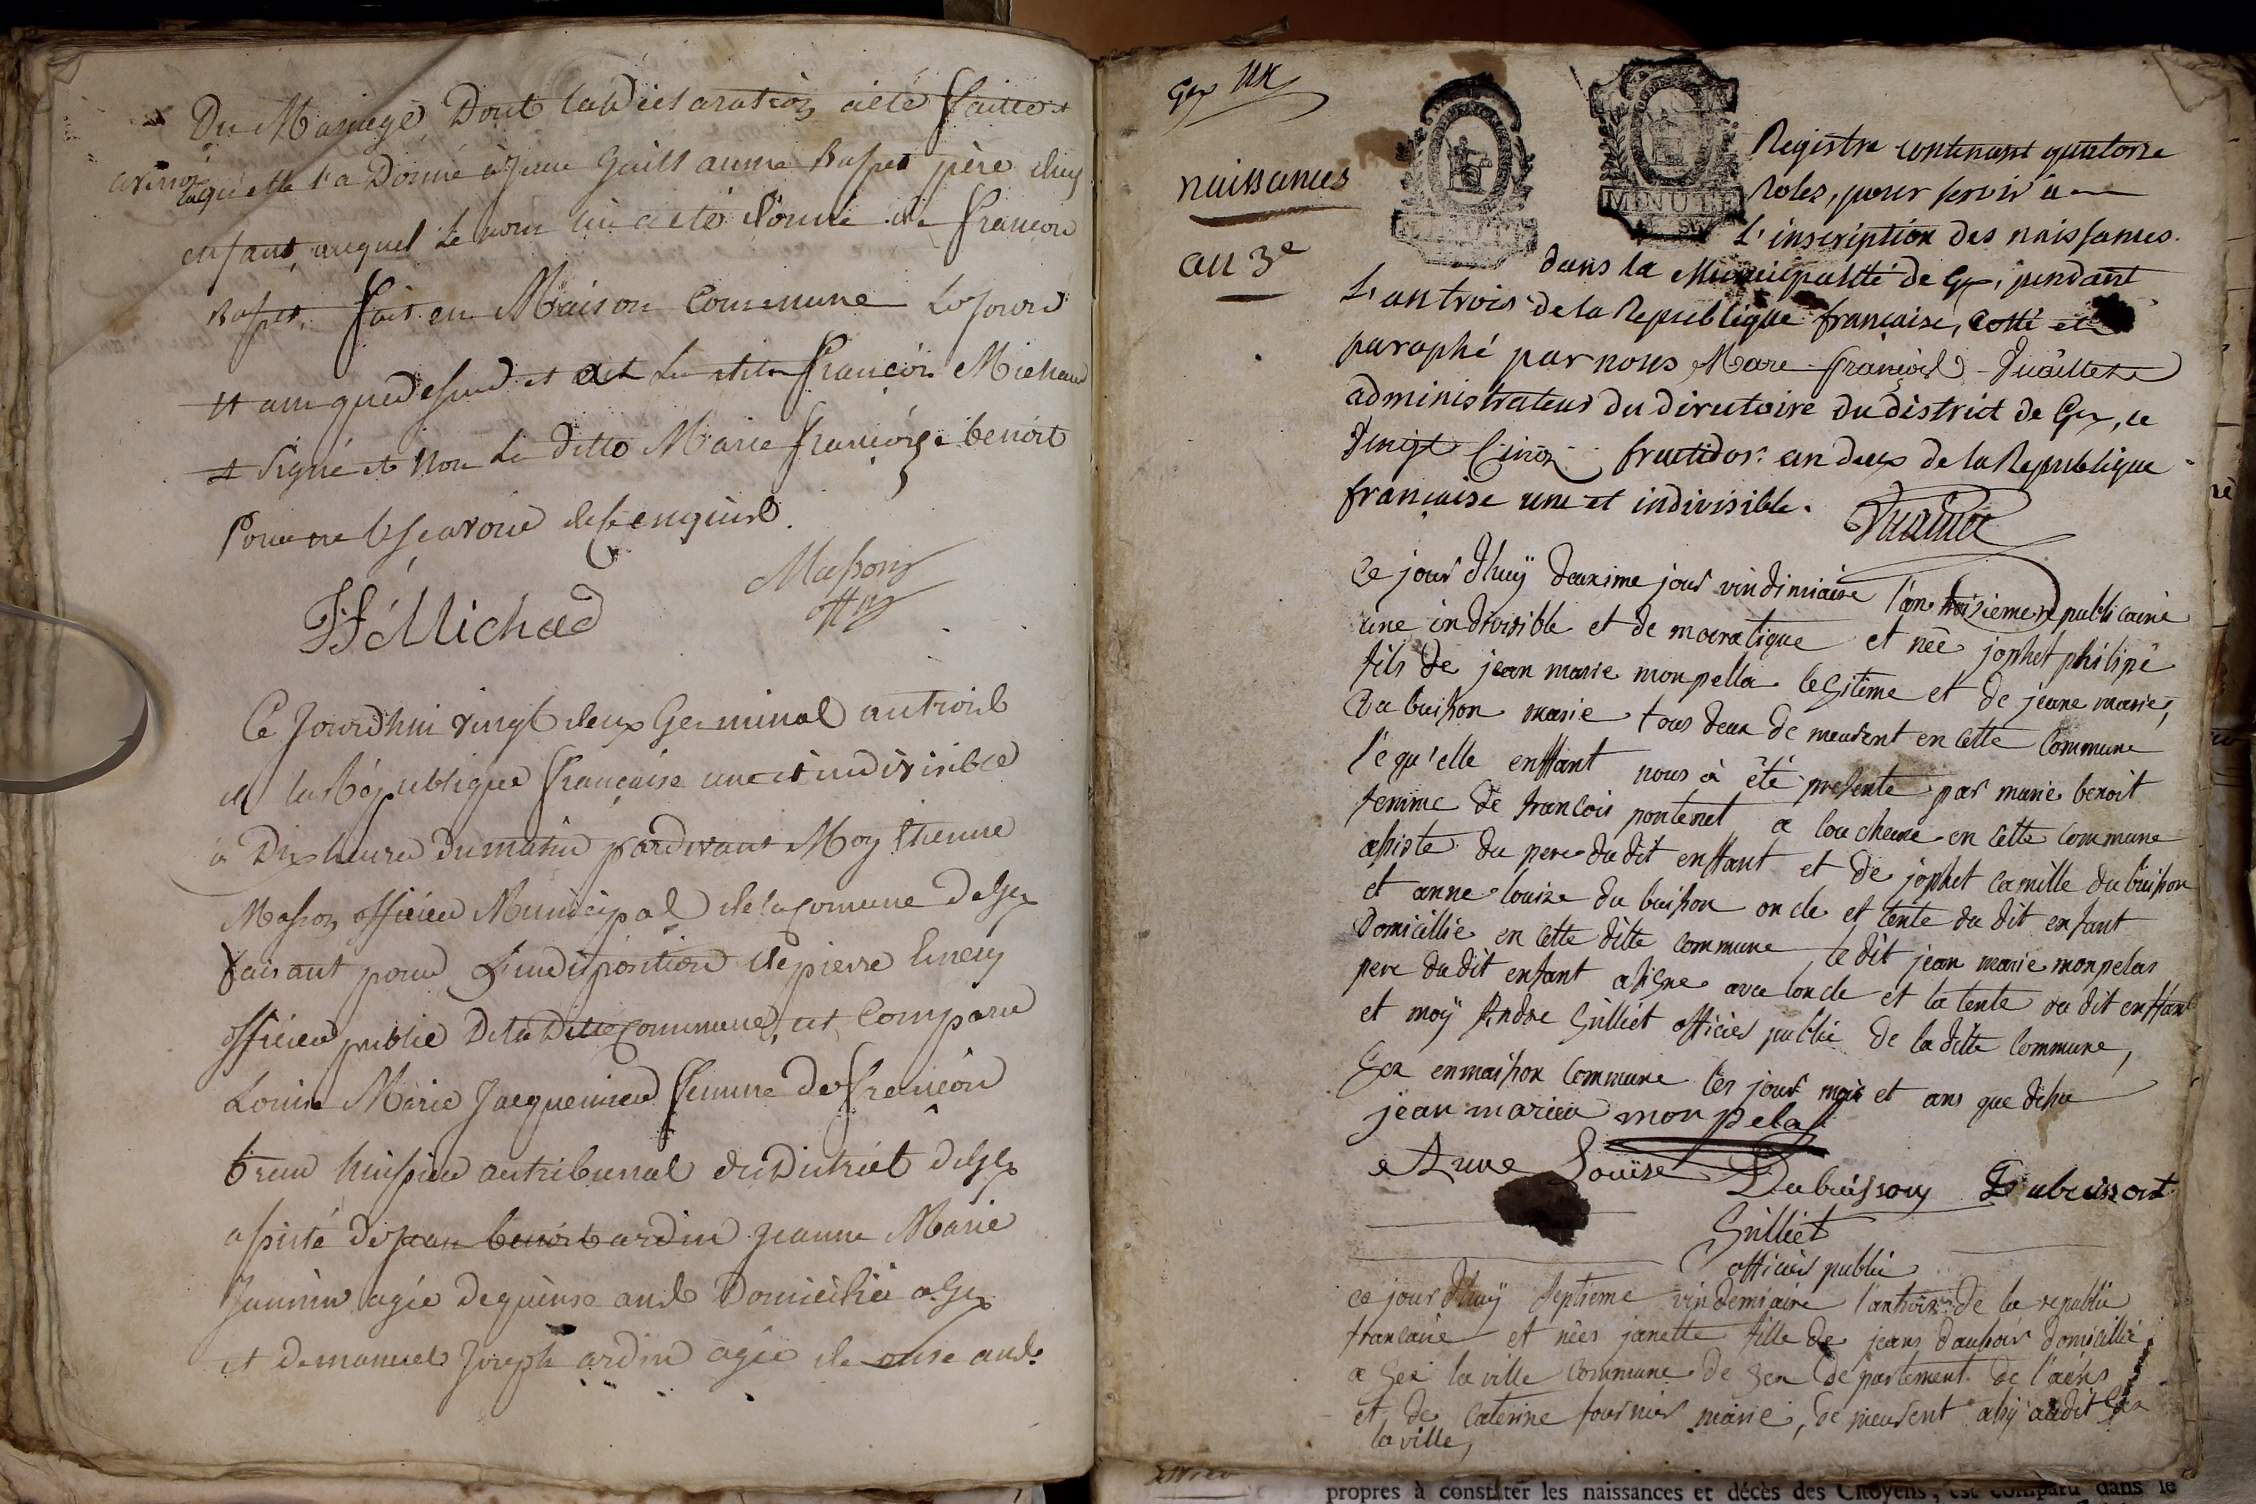 Du Mariage Dont la Déclaration a été faitte
a Donné à Jean Guillaume père
enfant auquel le nom a été Donné de françois
fait en Maison Commune Le Jour
et an que desus et ont François Michaud
et Signé et Non La ditte Marie françoise benoit
Pour ne le sçavoir de ce enquise.
Masson
off p
Michaud
Ce Jourdhui vingt deux Germinal an trois
de la République française une et indivisible
a Dix heures du matin pardevant Moy Etienne
Masson officier Municipal de la Comune De Gex
faisant pour L'indisposition de pierre Emery
officier public De la Ditte Commune, est Comparu
Louise Marie Jacquemier femme De françois
huissier au tribunal du District de Gex
assisté de Jean benoit ardin Jeanne Marie
Jannin agée De quinse ans Domiciliée a Gex
et de manuel Joseph ardin agée de onse ans
Gex
naissances
an 3e
MINUTE
Registre contenant quatorze
roles, pour servir a
L'inscription des naissances
dans la Municipalité de Gex, pendant
L'an trois de la Republique française, Cotté et
paraphé par nous Marc françois Vuaillet
administrateur du directoire du district de Gex, ce
Vingt Cinq fructidor an deux de la Republique
française une et indivisible.
Vuaillet
Ce jour d'huÿ deuxime jour vindimiaire l'an troisieme republicaine
une indivisible et de mocratique et néé jophet philipe
fils de jean marie monpella legitime et de jeane marie
Dubuisson marie tous deux de meurent en cette Commune
léqu'elle enffant nous à été presente par marie benoit
femme de francois pontenet a coucheure en cette Commune
assiste du pere du dit enffant et de jophet camille dubuisson
et anne louise du buisson oncle et tente du dit enfant
Domicillie en cette ditte commune le dit jean marie monpelas
pere du dit enfant a signe avec loncle et la tente du dit enffant
et moÿ Andre Gilliet officier public de la ditte Commune,
Gex en maison Commune les jour mois et ans que dessu
jean marie monpelas
Anne Louise Dubuisson Dubuisont
Gilliet
officier public
ce jour d'huÿ septieme vindemiaire l'an troix de la republic
francaise et néés janette fille de jeans domicillié
a Gex la ville Commune de Gex de partement de l'aéns
et de Caterine fournier marié, de meurent assy audit Gex
la ville,
propres à constater les naissances et décès des Citoyens, est comparu dans le